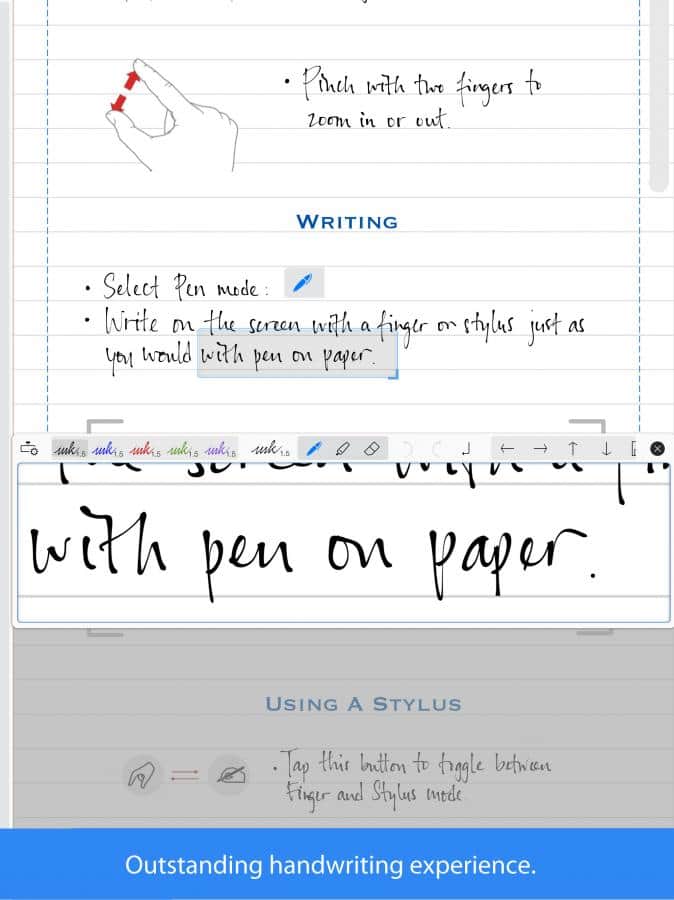 • Pinch with two fingers to
zoom in or out.
WRITING
• Select Pen mode:
• Write on the screen with a finger or stylus just as
you would with pen on paper.
ink1.5 ink1.5 ink1.5 ink1.5 ink1.5 ink1.5
with pen on paper.
USING A STYLUS
• Tap this button to toggle between
Finger and Stylus mode
Outstanding handwriting experience.